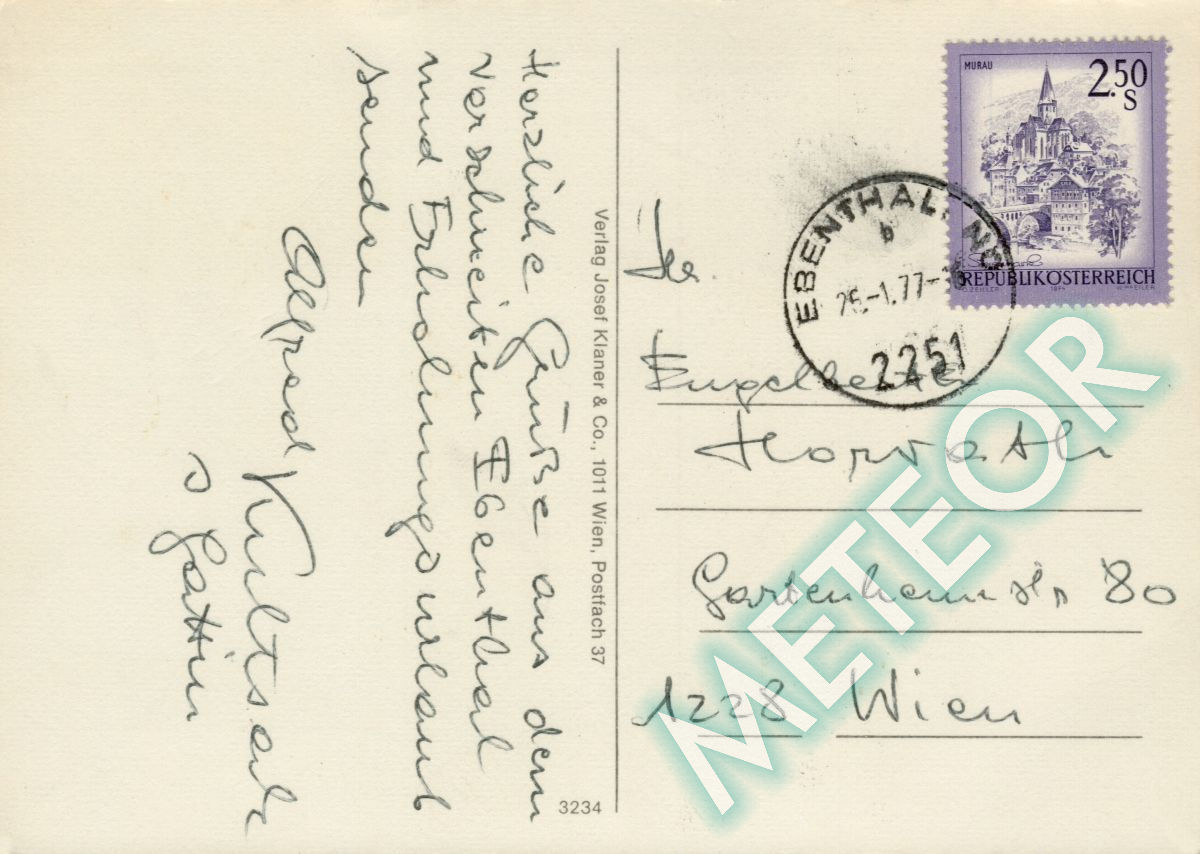 Herzliche Grüße aus dem
verschneiten Ebenthal
und Erholungsurlaub
senden
Alfred
s Gattin
Verlag Josef Klaner & Co., 1011 Wien, Postfach 37
3234
MURAU
2.50
S
REPUBLIK ÖSTERREICH
EBENTHAL, NÖ
b
25.-1.77-18
2251
Horvath
80
1228 Wien
METEOR